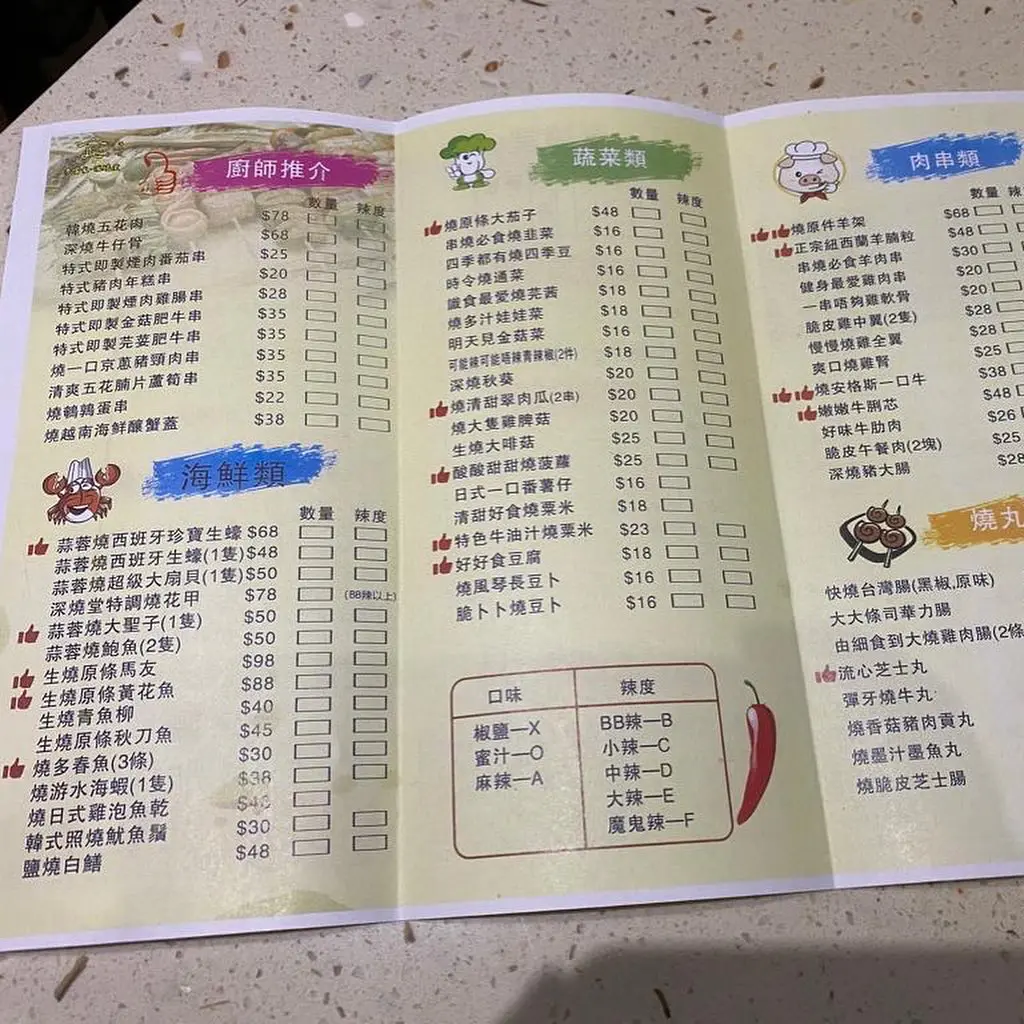 廚師推介
數量 辣度
韓燒五花肉 $78
深燒牛仔骨 $68
特式即製煙肉番茄串 $25
特式豬肉年糕串 $20
特式即製煙肉雞腸串 $28
特式即製金菇肥牛串 $35
特式即製芫荽肥牛串 $35
燒一口京蔥豬頸肉串 $35
清爽五花腩片蘆筍串 $35
燒鵪鶉蛋串 $22
燒越南海鮮釀蟹蓋 $38
海鮮類
數量 辣度
蒜蓉燒西班牙珍寶生蠔 $68
蒜蓉燒西班牙生蠔(1隻) $48
蒜蓉燒超級大扇貝(1隻) $50
深燒堂特調燒花甲 $78 (BB辣以上)
蒜蓉燒大聖子(1隻) $50
蒜蓉燒鮑魚(2隻) $50
生燒原條馬友 $98
生燒原條黃花魚 $88
生燒青魚柳 $40
生燒原條秋刀魚 $45
燒多春魚(3條) $30
燒游水海蝦(1隻) $38
燒日式雞泡魚乾
韓式照燒魷魚鬚 $30
鹽燒白鱔 $48
蔬菜類
數量 辣度
燒原條大茄子 $48
串燒必食燒韭菜 $16
四季都有燒四季豆 $16
時令燒通菜 $16
識食最愛燒芫茜 $18
燒多汁娃娃菜 $18
明天見金菇菜 $16
可能辣可能唔辣青辣椒(2件) $18
深燒秋葵 $20
燒清甜翠肉瓜(2串) $20
燒大隻雞脾菇 $20
生燒大啡菇 $25
酸酸甜甜燒菠蘿 $25
日式一口番薯仔 $16
清甜好食燒粟米 $18
特色牛油汁燒粟米 $23
好好食豆腐 $18
燒風琴長豆卜 $16
脆卜卜燒豆卜 $16
口味 辣度
椒鹽—X BB辣—B
蜜汁—O 小辣—C
麻辣—A 中辣—D
大辣—E
魔鬼辣—F
肉串類
數量 辣
燒原件羊架 $68
正宗紐西蘭羊腩粒 $48
串燒必食羊肉串 $30
健身最愛雞肉串 $20
一串唔夠雞軟骨 $20
脆皮雞中翼(2隻) $28
慢慢燒雞全翼 $28
爽口燒雞腎 $25
燒安格斯一口牛 $38
嫩嫩牛脷芯 $48
好味牛肋肉 $26
脆皮午餐肉(2塊) $25
深燒豬大腸 $28
燒丸
快燒台灣腸(黑椒,原味)
大大條司華力腸
由細食到大燒雞肉腸(2條
流心芝士丸
彈牙燒牛丸
燒香菇豬肉貢丸
燒墨汁墨魚丸
燒脆皮芝士腸